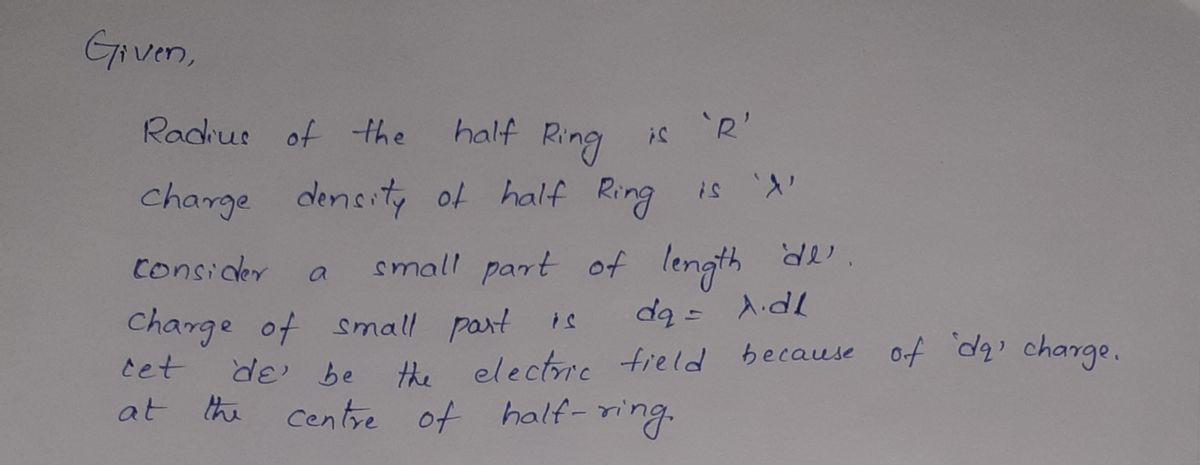 Given,
Radius of the half Ring is 'R'
charge density of half Ring is 'λ'
consider a small part of length 'dl'.
charge of small part is dq = λ.dl
Let 'dE' be the electric field because of 'dq' charge.
at the centre of half-ring.